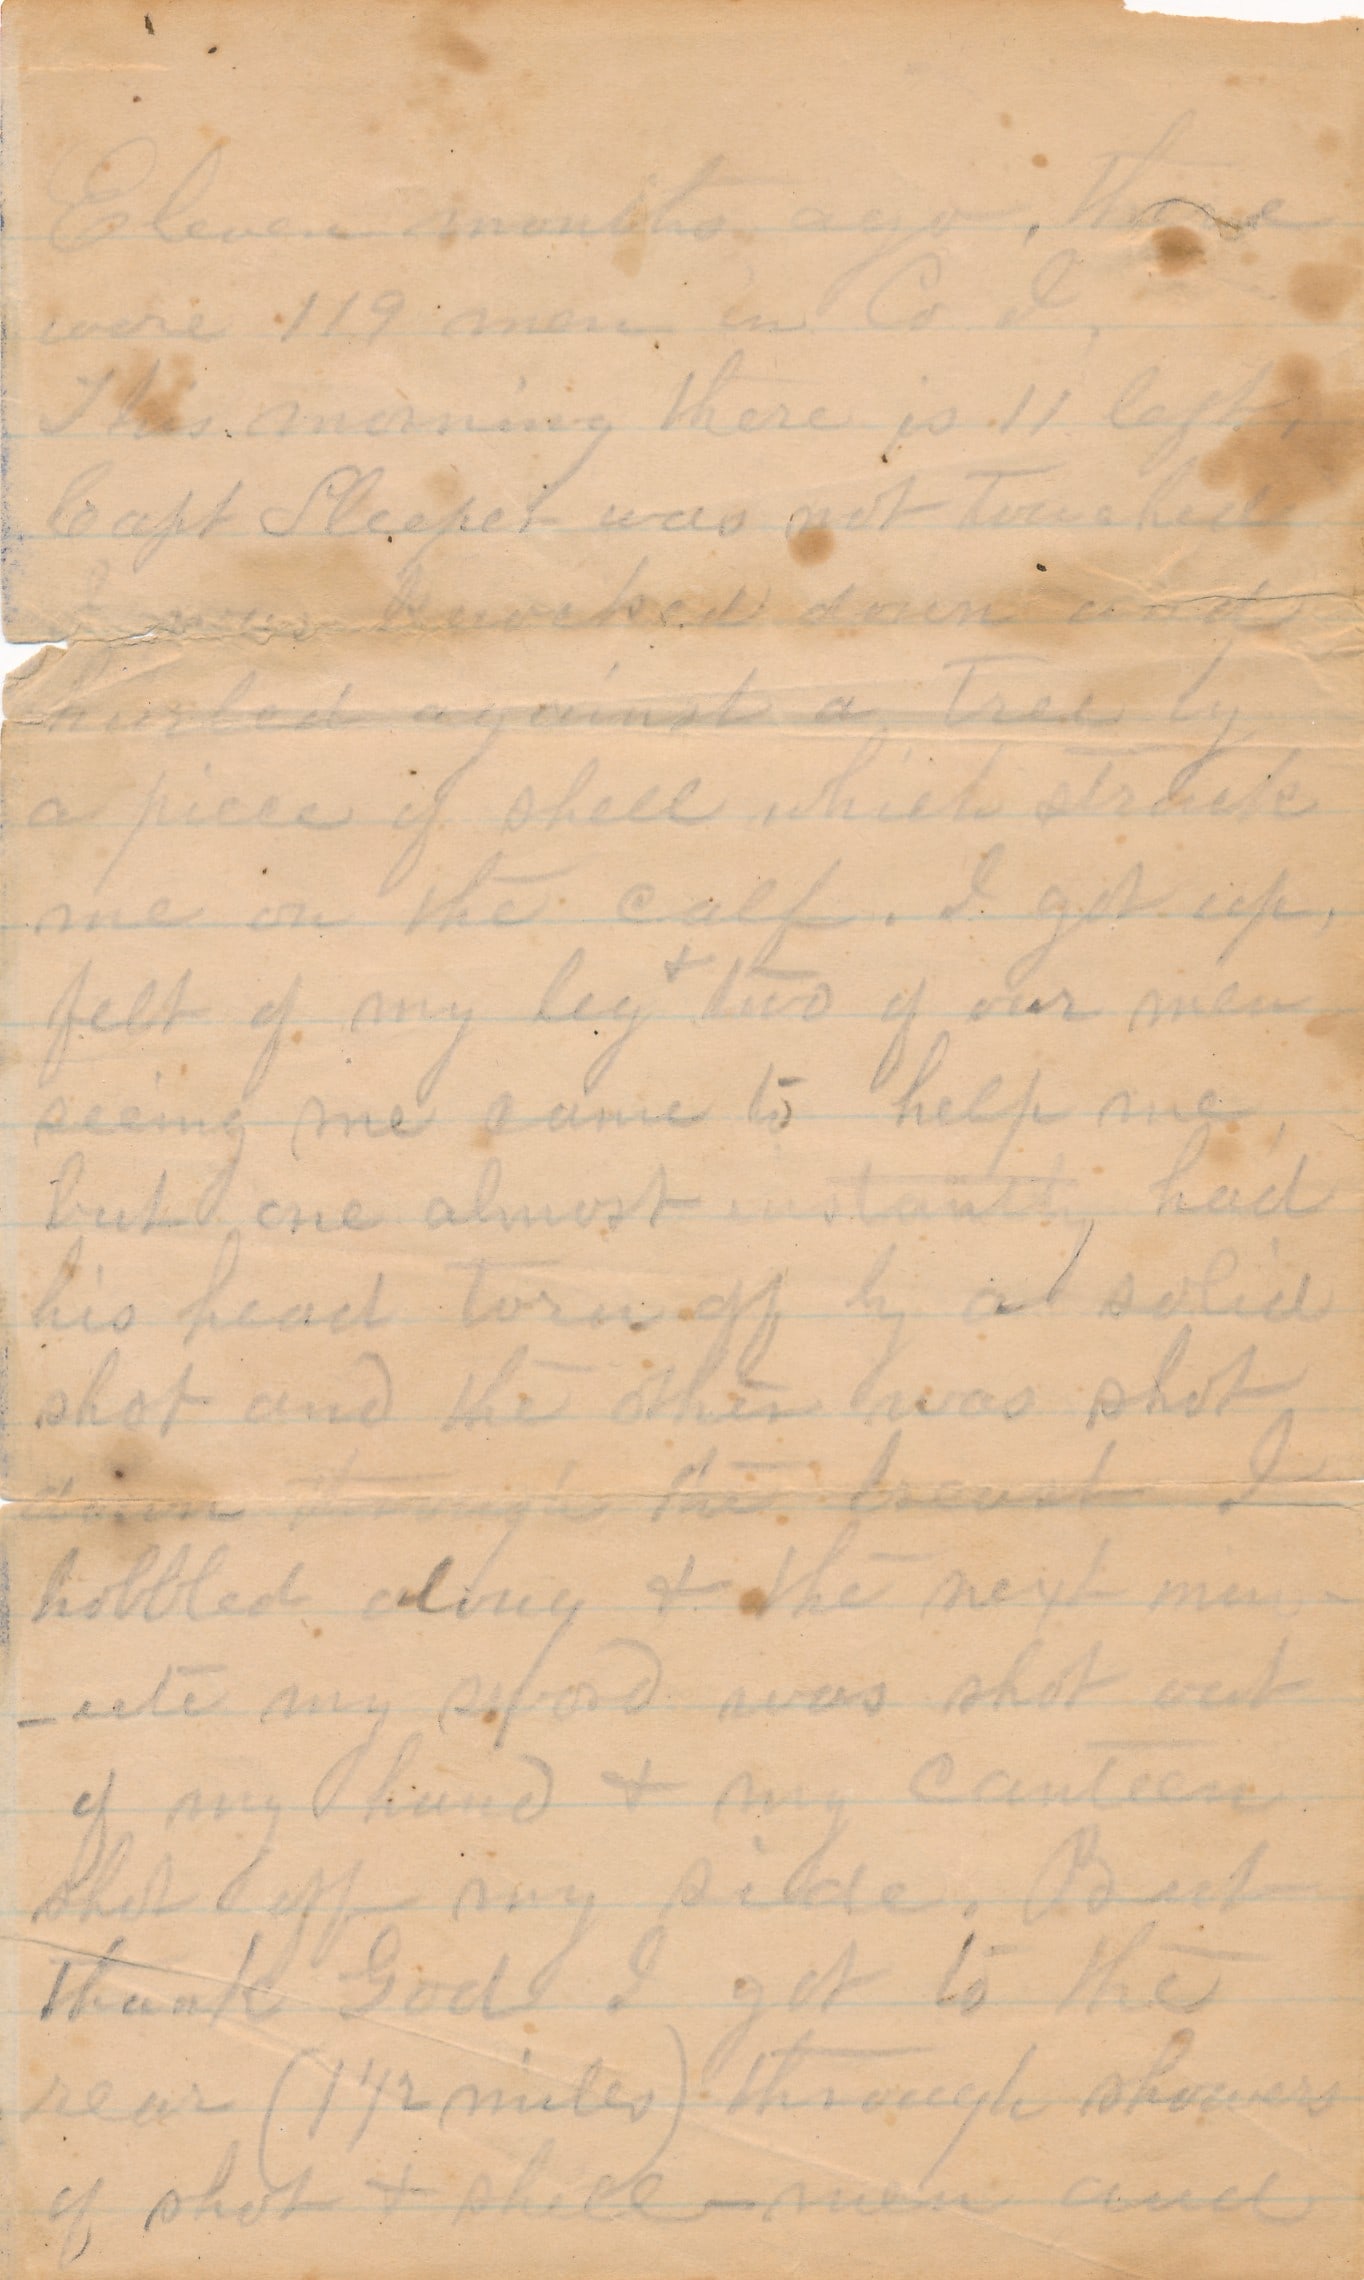 Eleven months ago, there
were 119 men in Co I,
This morning there is 11 left,
Capt Sleeper was not touched
I was knocked down and
hurled against a tree by
a piece of shell which struck
me on the calf. I got up,
felt of my leg & two of our men
seeing me came to help me,
but one almost instantly had
his head torn off by a solid
shot and the other was shot
down through the breast I
hobbled along & the next min-
-ute my sword was shot out
of my hand & my canteen
shot off my side. But
thank God I got to the
rear (1 1/2 miles) through showers
of shot & shell - men and